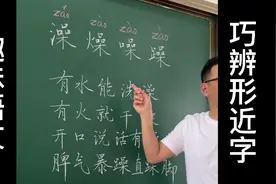 zǎo zào zào zào
澡 燥 噪 躁
有水能洗澡
有火就干
开口说话有
脾气暴躁直跺脚
巧辨形近字